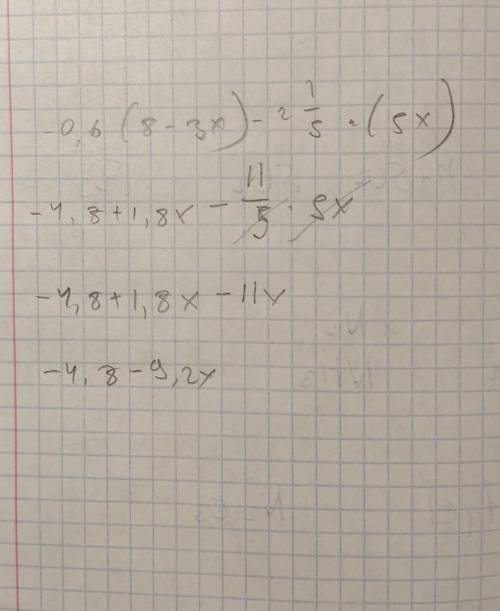 -0,6 (8 - 3x) - 2 1/5 · (5x)
-4,8 + 1,8x - 11/5 · 5x
-4,8 + 1,8x - 11x
-4,8 - 9,2x